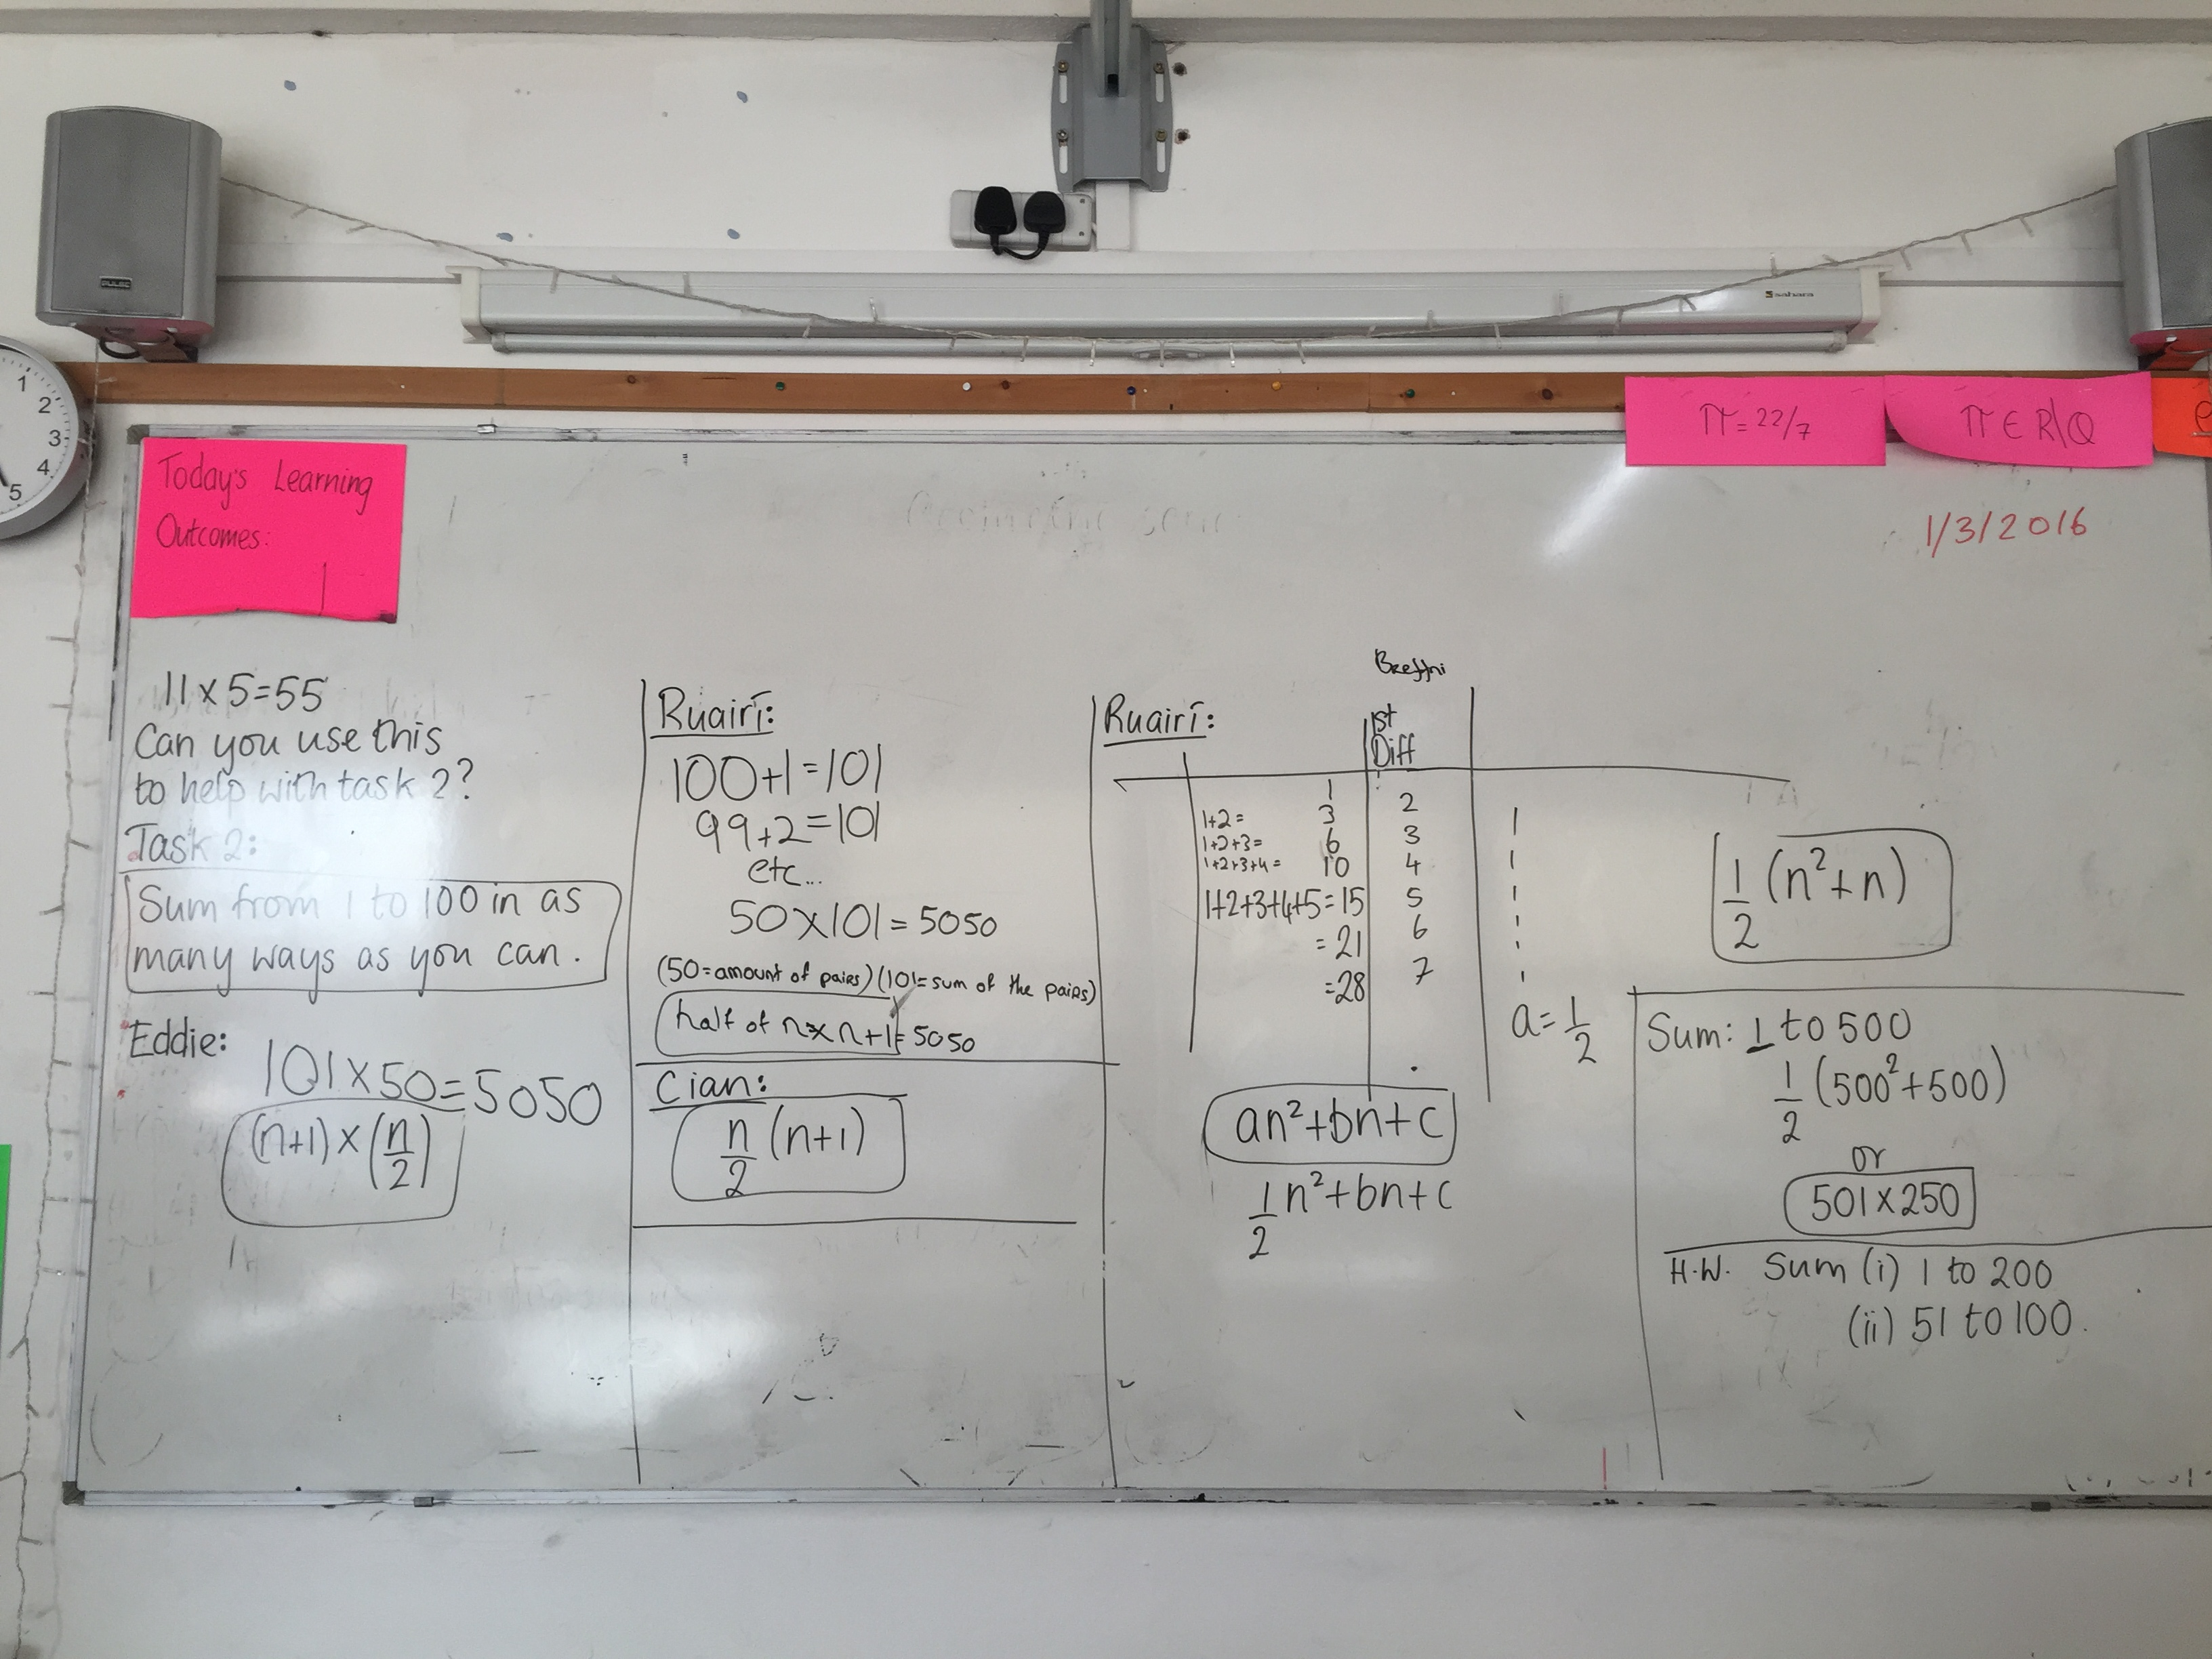 1
2
3
4
5
sahara
π = 22/7
π ∈ R\Q
Today's Learning
Outcomes:
1/3/2016
11 x 5 = 55
Can you use this
to help with task 2?
Task 2:
Sum from 1 to 100 in as
many ways as you can.
Eddie:
101 x 50 = 5050
(n+1) x (n/2)
Ruairí:
100+1=101
99+2=101
etc...
50x101=5050
(50=amount of pairs) (101=sum of the pairs)
half of n x n+1 = 5050
Cian:
n/2 (n+1)
Breffni
Ruairí:
1st
Diff
1
2
1+2= 3
3
1
1+2+3= 6
4
1
1+2+3+4= 10
5
1
1+2+3+4+5=15
6
1
=21
7
1
=28
a=1/2
an²+bn+c
1/2 n²+bn+c
1/2 (n²+n)
Sum: 1 to 500
1/2 (500²+500)
or
501x250
H.W. Sum (i) 1 to 200
(ii) 51 to 100.